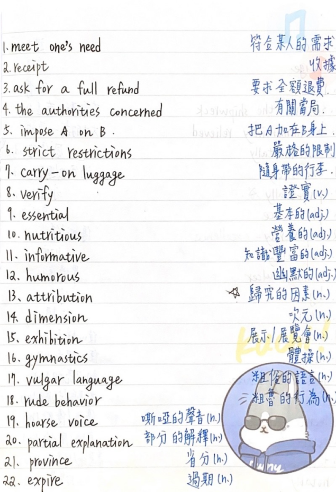 1. meet one's need 符合某人的需求
2. receipt 收據
3. ask for a full refund 要求全額退費
4. the authorities concerned 有關當局
5. impose A on B. 把A加在B身上.
6. strict restrictions 嚴格的限制
7. carry-on luggage 隨身帶的行李.
8. verify 證實(v.)
9. essential 基本的(adj.)
10. nutritious 營養的(adj.)
11. informative 知識豐富的(adj.)
12. humorous 幽默的(adj.)
13. attribution ☆歸究的因素(n.)
14. dimension 次元(n.)
15. exhibition 展示/展覽會(n.)
16. gymnastics 體操(n.)
17. vulgar language 粗俗的語言(n.)
18. rude behavior 粗魯的行為(n.)
19. hoarse voice 嘶啞的聲音(n.)
20. partial explanation 部分的解釋(n.)
21. province 省分(n.)
22. expire 過期(n.)